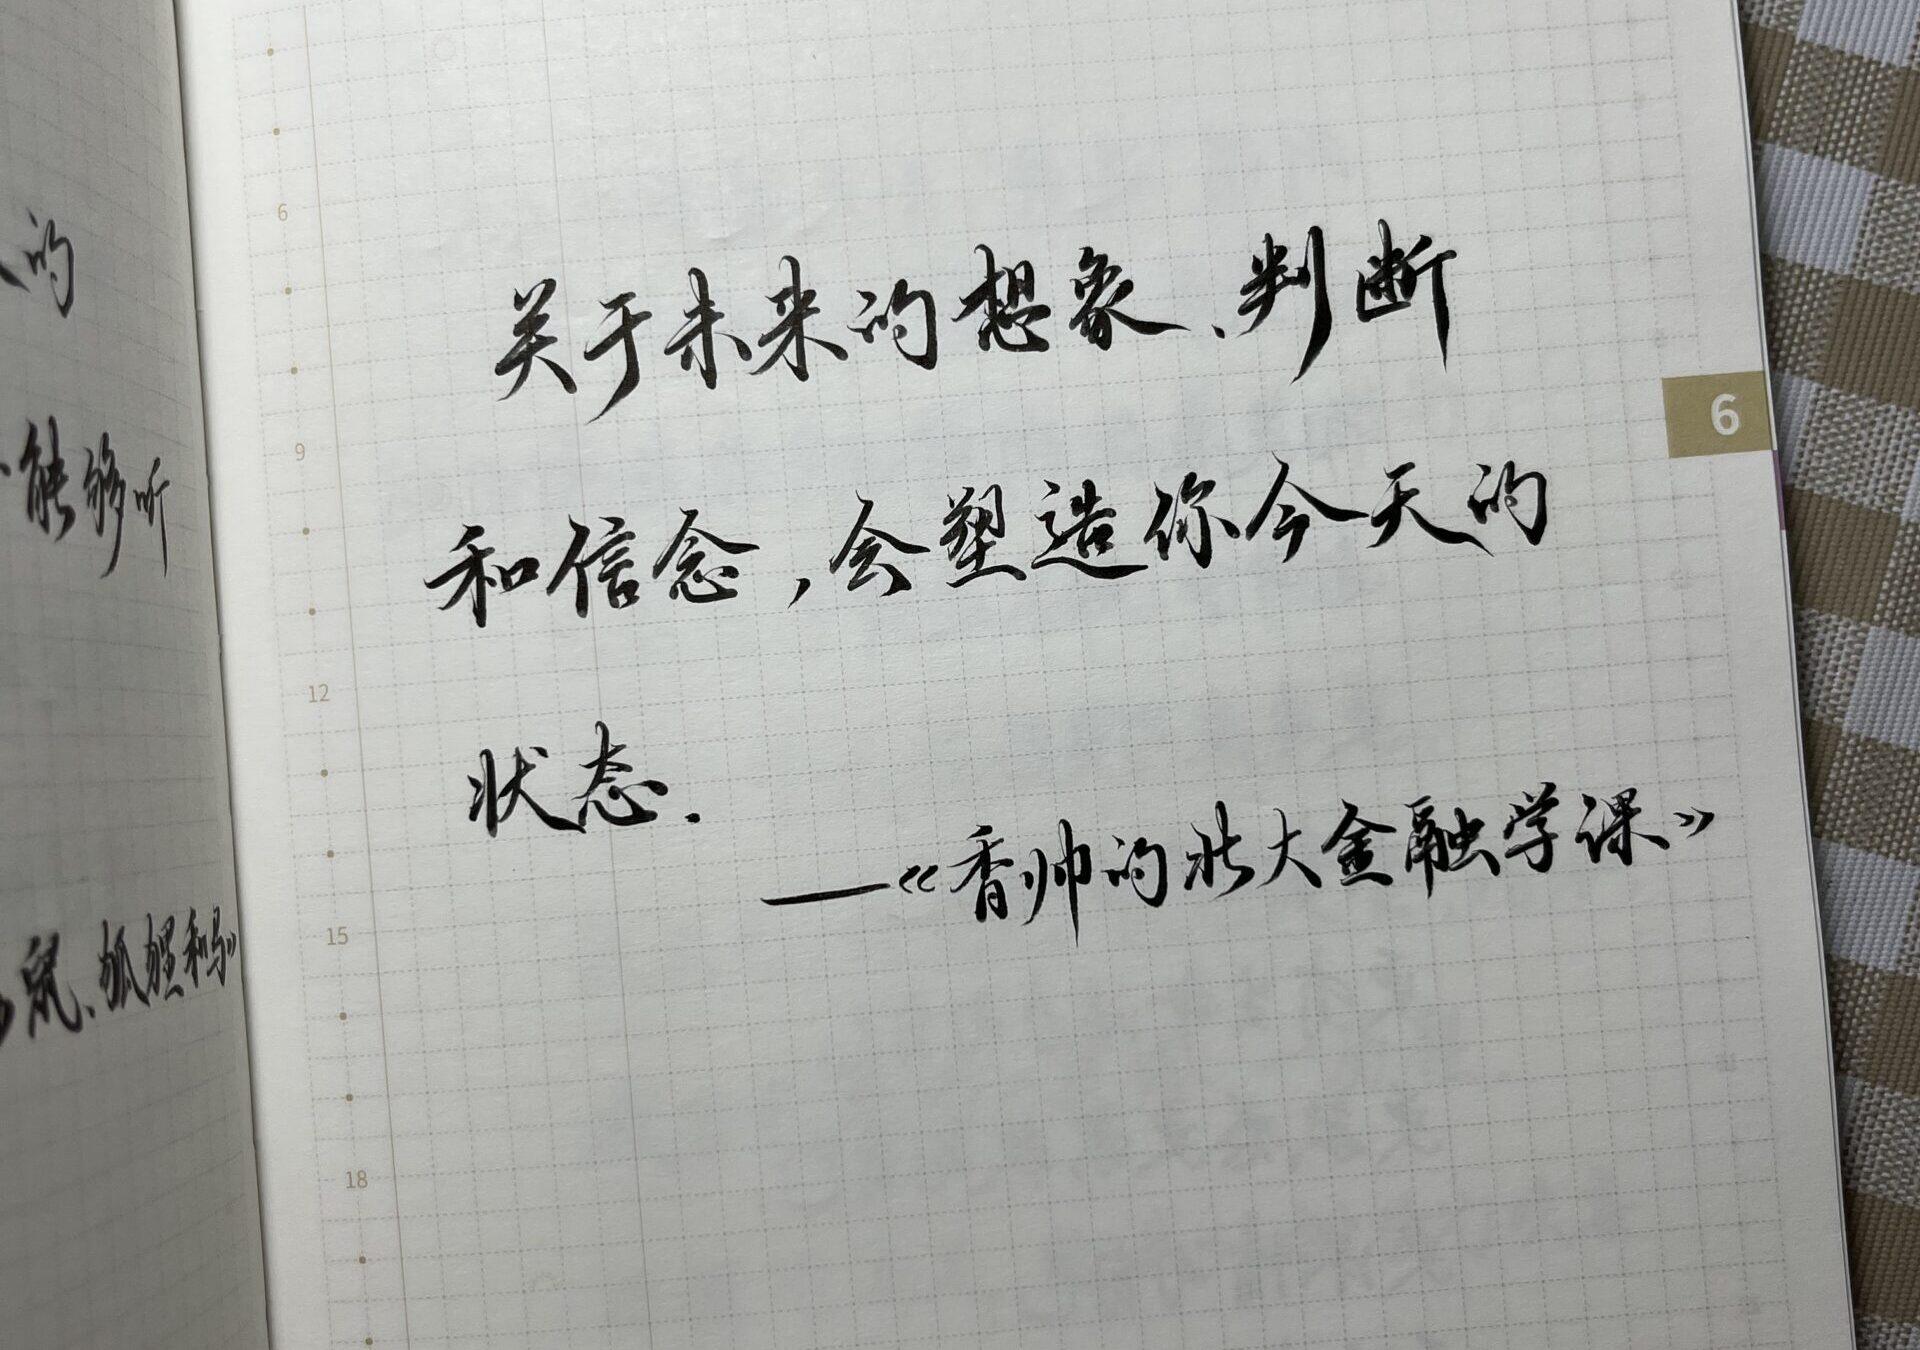 的
能够听
鼠、狐狸和马》
6
9
12
15
18
关于未来的想象、判断
和信念，会塑造你今天的
状态.
——《香帅的北大金融学课》
6